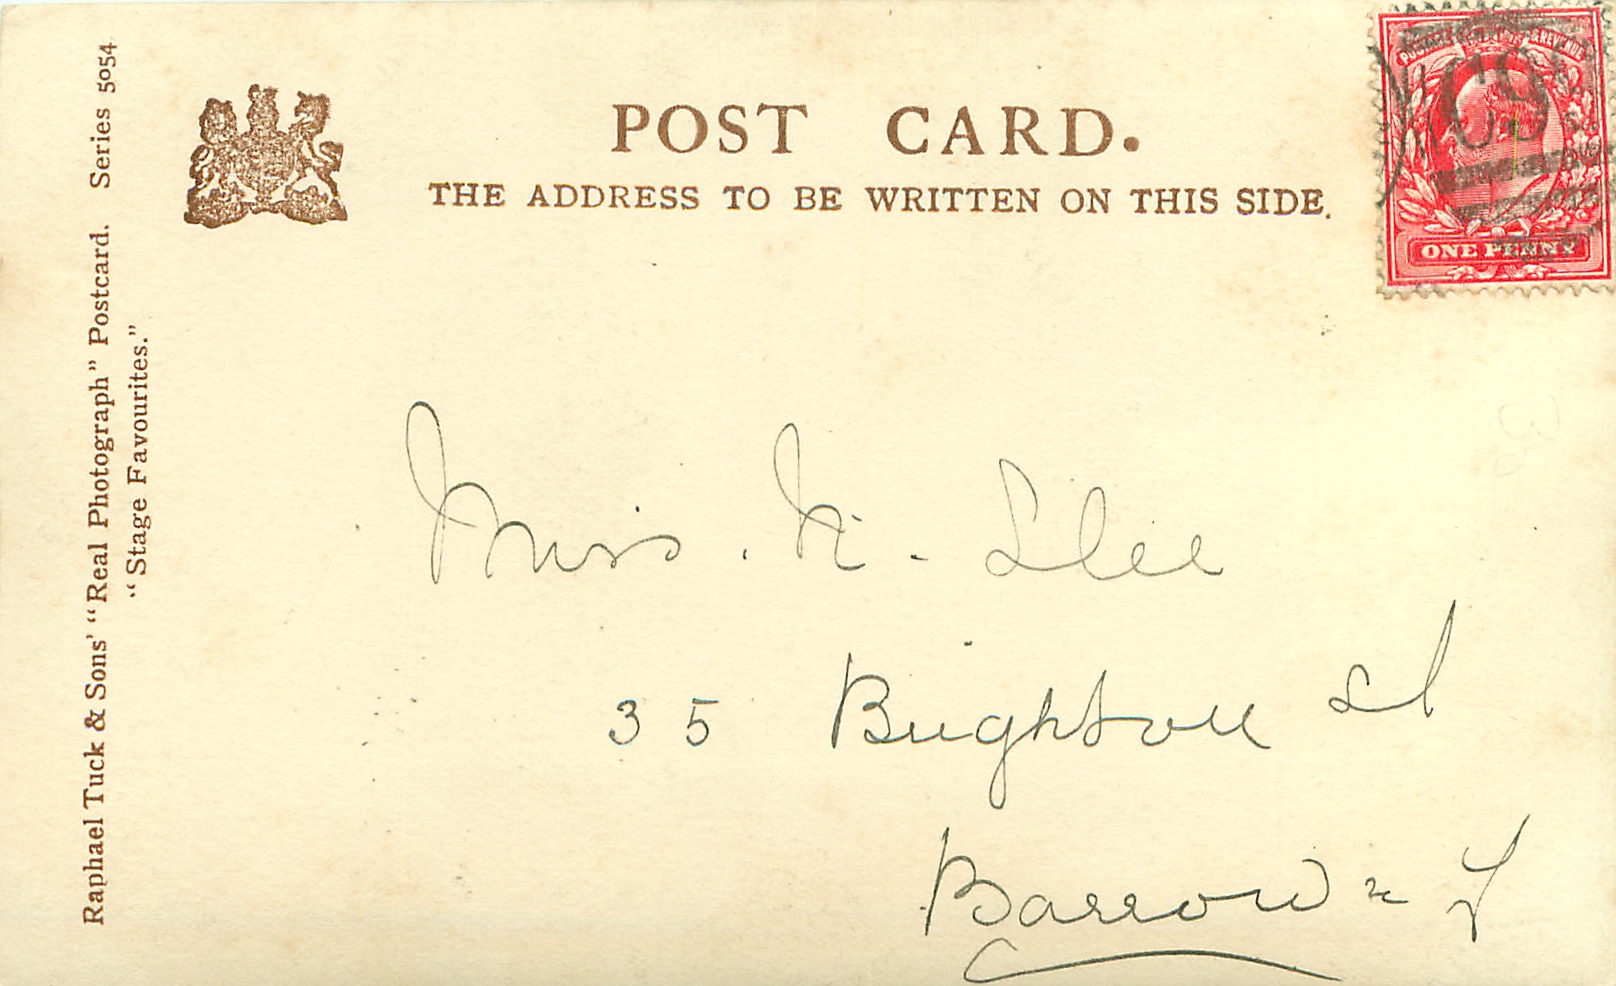 POST CARD.
THE ADDRESS TO BE WRITTEN ON THIS SIDE.
POSTAGE & REVENUE
ONE PENNY
Raphael Tuck & Sons' "Real Photograph" Postcard. Series 5054
"Stage Favourites."
Miss. N. Slee
35 Brighton St
Barrow n F